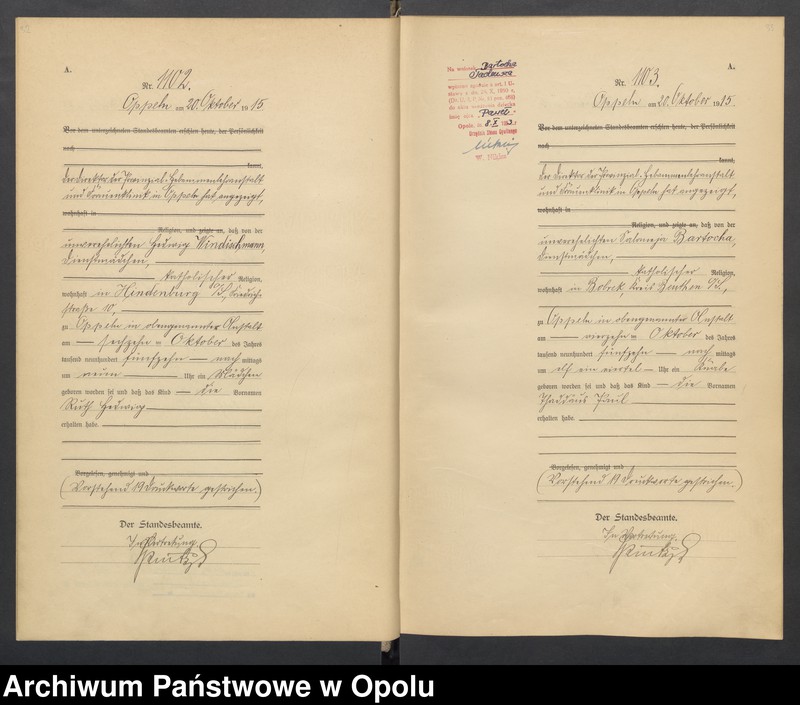 A.
Nr. 1102.
Oppeln am 20. Oktober 1915
Vor dem unterzeichneten Standesbeamten erschien heute, der Persönlichkeit
nach
kannt,
der Direktor der Provinzial-Hebammenlehranstalt
und Frauenklinik in Oppeln hat angezeigt,
wohnhaft in
Religion, und zeigte an, daß von der
unverehelichten Hedwig Windischmann,
Dienstmädchen,
katholischer Religion,
wohnhaft in Hindenburg O/S,
straße 10,
zu Oppeln in obengenannter Anstalt
am sechzehn ten Oktober des Jahres
tausend neunhundert fünfzehn nach mittags
um neun Uhr ein Mädchen
geboren worden sei und daß das Kind die Vornamen
Ruth Hedwig
erhalten habe.
Vorgelesen, genehmigt und
(Vorstehend 19 Druckworte gestrichen.)
Der Standesbeamte.
In Vertretung.
A.
Nr. 1103.
Na wniosek Bartocha
Tadeusza
Paweł
Opole
W.
Oppeln am 20. Oktober 1915.
Vor dem unterzeichneten Standesbeamten erschien heute, der Persönlichkeit
nach
kannt,
der Direktor der Provinzial-Hebammenlehranstalt
und Frauenklinik in Oppeln hat angezeigt,
wohnhaft in
Religion, und zeigte an, daß von der
unverehelichten Salomeja Bartocha,
Dienstmädchen,
katholischer Religion,
wohnhaft in Bobrek, Kreis Beuthen O/S.,
zu Oppeln in obengenannter Anstalt
am vierzehn ten Oktober des Jahres
tausend neunhundert fünfzehn nach mittags
um elf ein viertel Uhr ein Knabe
geboren worden sei und daß das Kind die Vornamen
Thaddäus Paul
erhalten habe.
Vorgelesen, genehmigt und
(Vorstehend 19 Druckworte gestrichen.)
Der Standesbeamte.
In Vertretung.
Archiwum Państwowe w Opolu